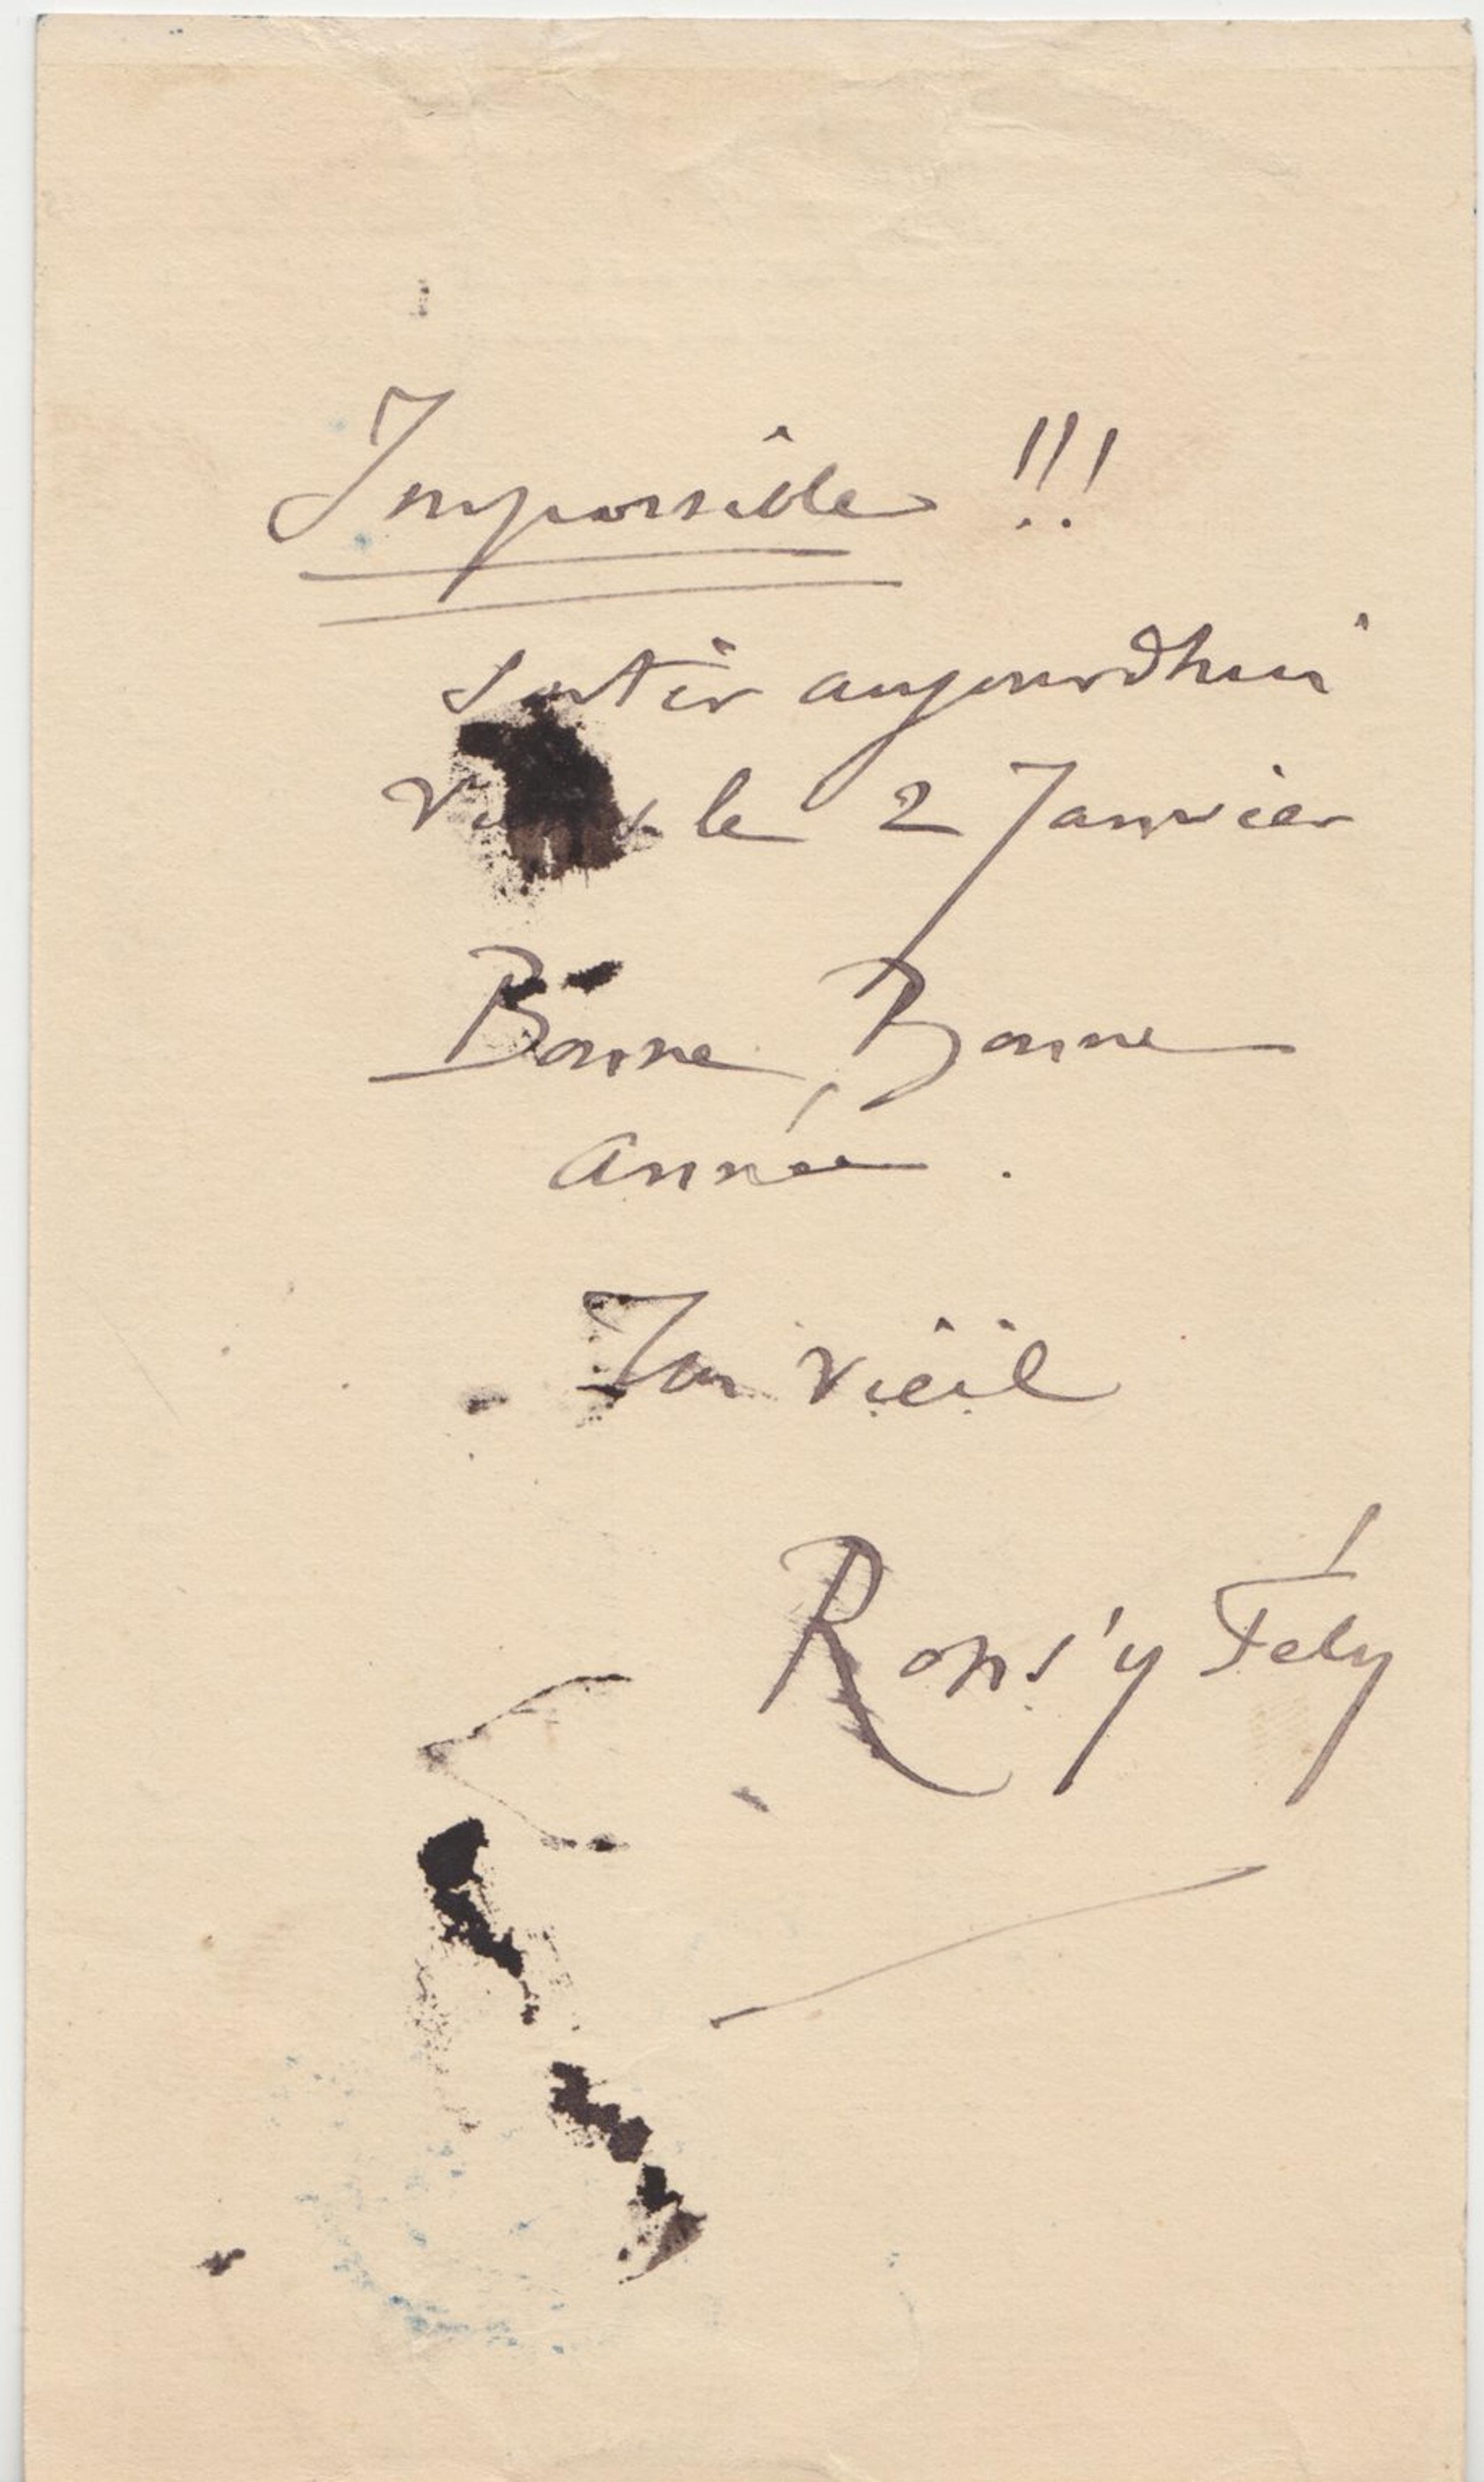 Impossible !!!
sortir aujourdhui
le 2 Janvier
Bonne, Bonne
année.
Ton vieil
Rons'y Fély